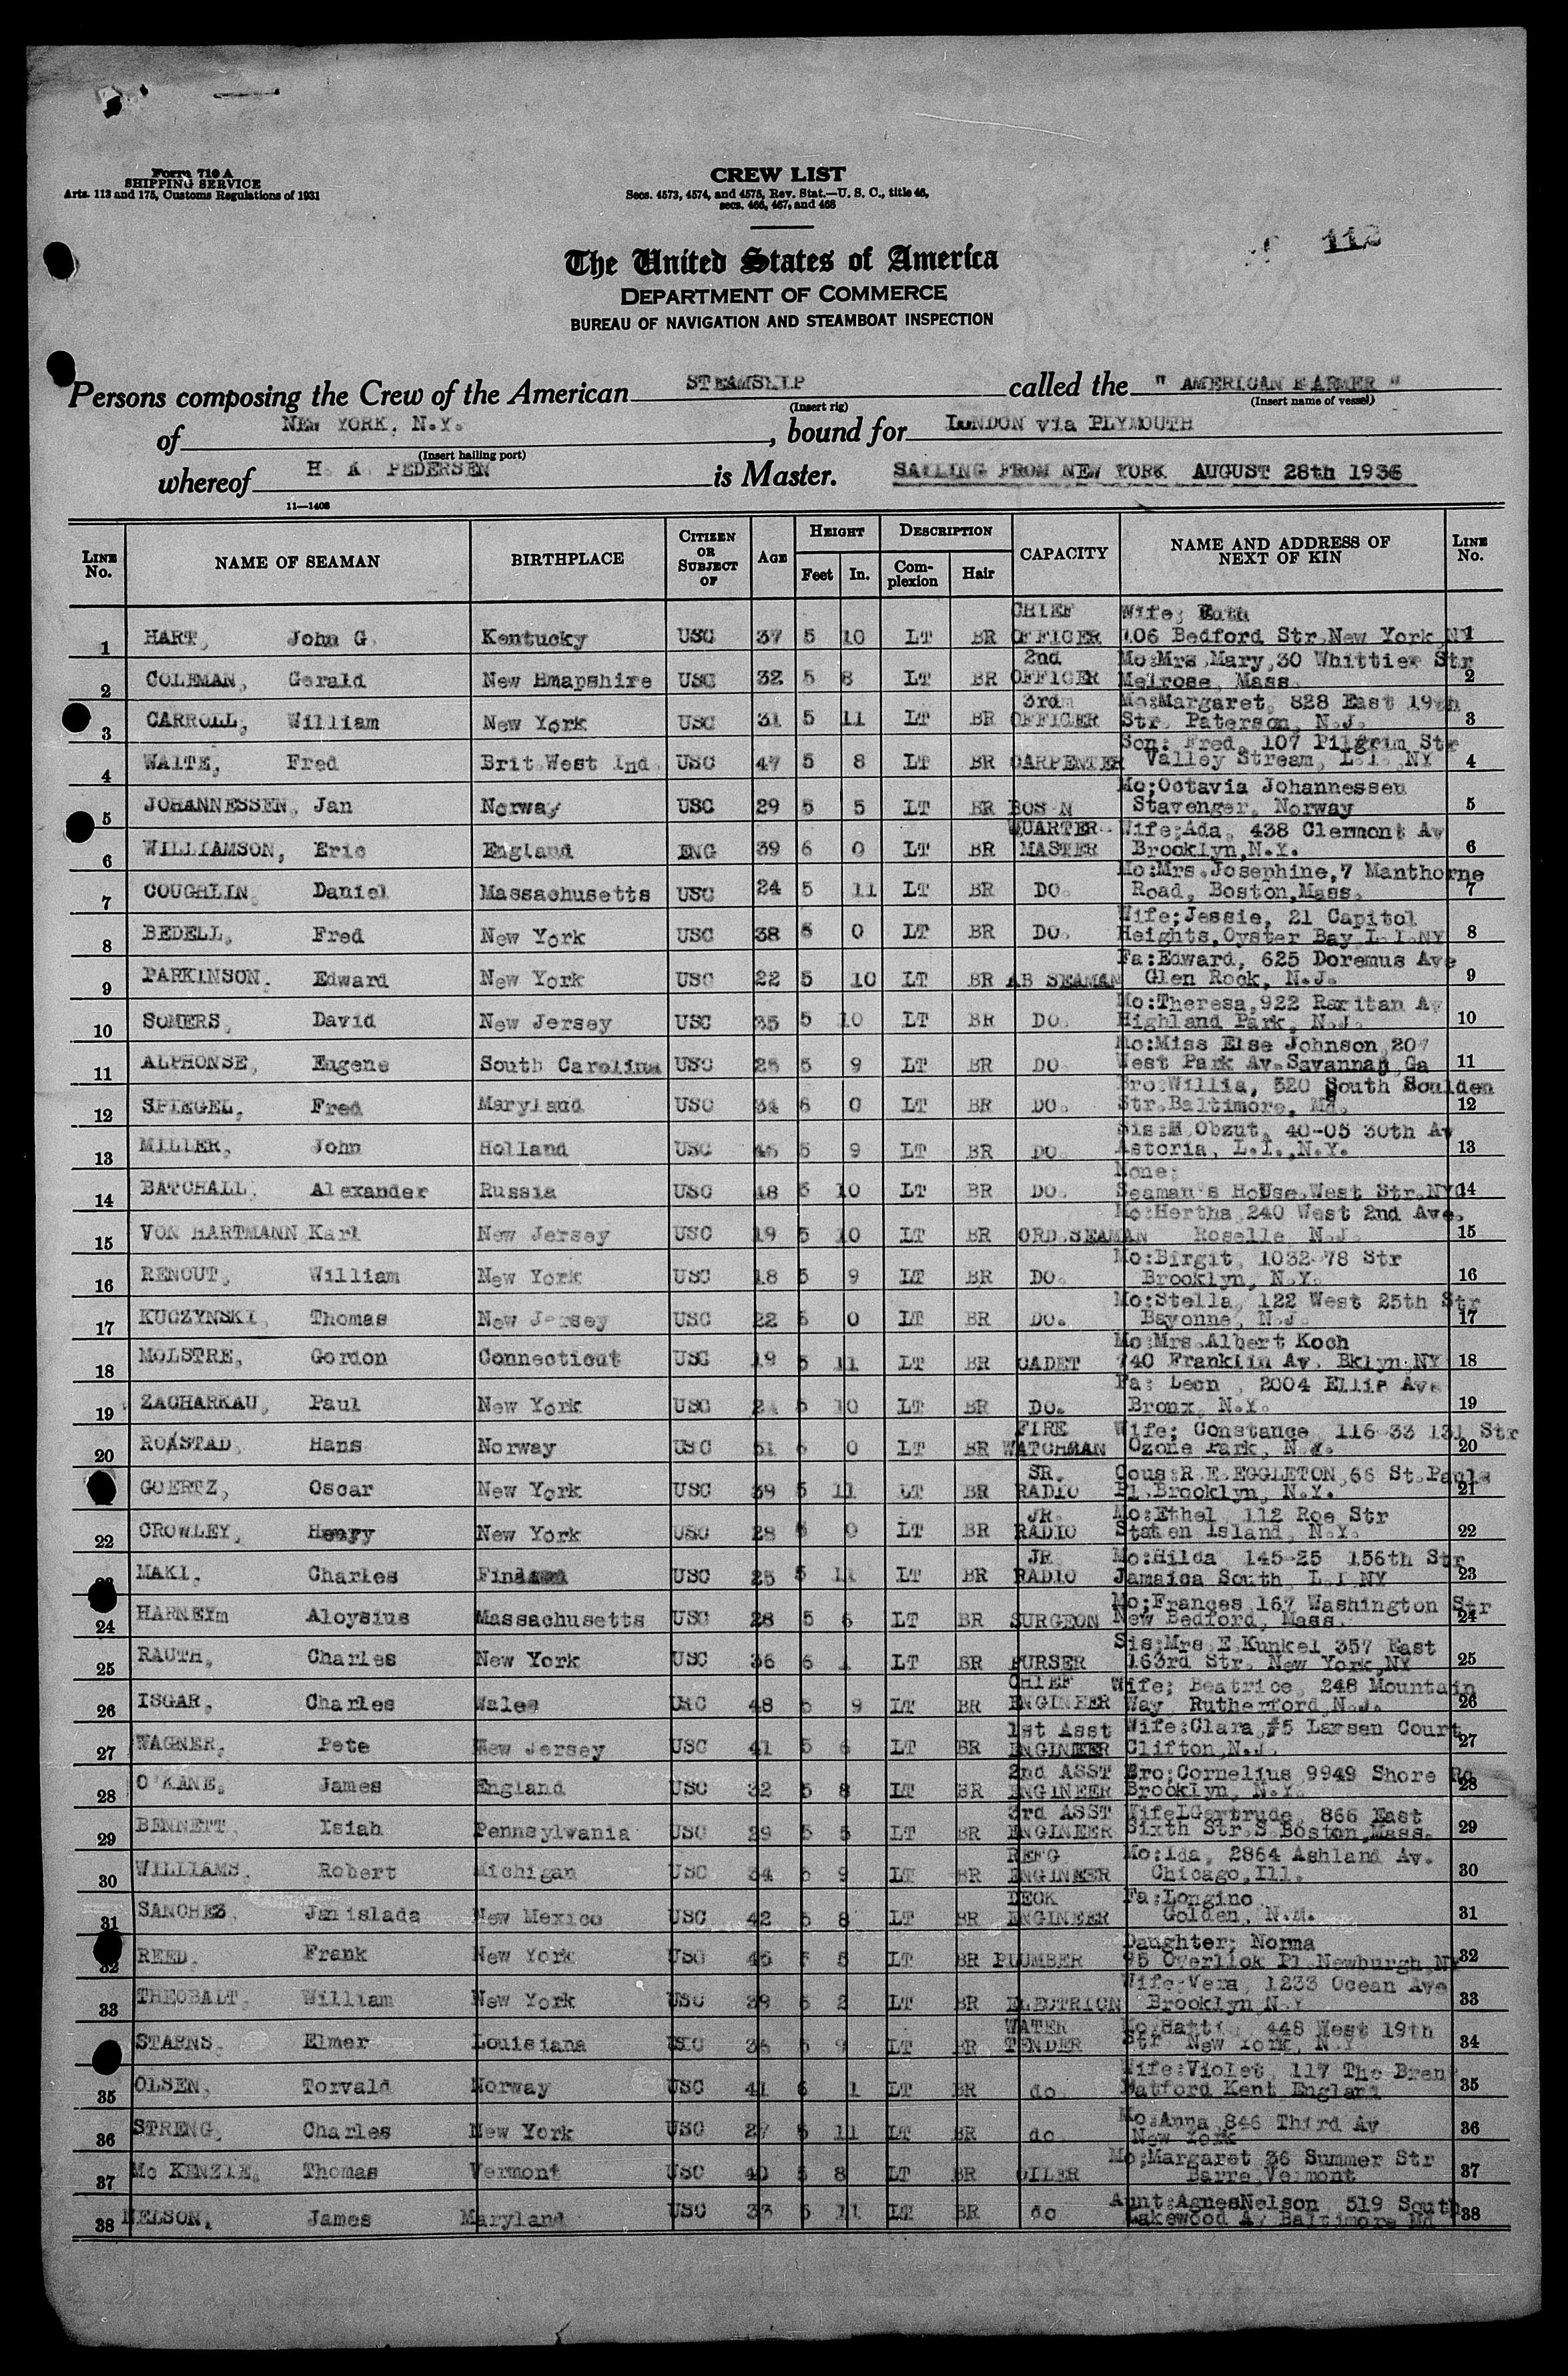 Form 710 A
SHIPPING SERVICE
Arts. 113 and 175, Customs Regulations of 1931
CREW LIST
Secs. 4573, 4574, and 4575, Rev. Stat.—U. S. C., title 46,
secs. 466, 467, and 468
112
The United States of America
DEPARTMENT OF COMMERCE
BUREAU OF NAVIGATION AND STEAMBOAT INSPECTION
Persons composing the Crew of the American STEAMSHIP called the " AMERICAN FARMER "
(Insert rig) (Insert name of vessel)
of NEW YORK, N.Y. , bound for LONDON via PLYMOUTH
(Insert hailing port)
whereof H. K. PEDERSEN is Master. SAILING FROM NEW YORK AUGUST 28th 1936
11—1408
LINE No. NAME OF SEAMAN BIRTHPLACE CITIZEN OR SUBJECT OF AGE HEIGHT Feet In. DESCRIPTION Complexion Hair CAPACITY NAME AND ADDRESS OF NEXT OF KIN LINE No.
CHIEF Wife; Ruth
1 HART, John G. Kentucky USC 37 5 10 LT BR OFFICER 106 Bedford Str.New York NY 1
2nd Mo:Mrs.Mary,30 Whittier Str
2 COLEMAN, Gerald New Hmapshire USC 32 5 8 LT BR OFFICER Melrose, Mass. 2
3rdm Mo:Margaret, 828 East 19th
3 CARROLL, William New York USC 31 5 11 LT BR OFFICER Str. Paterson, N.J. 3
Son: Fred, 107 Pilgrim Str
4 WAITE, Fred Brit.West Ind. USC 47 5 8 LT BR CARPENTER Valley Stream, L.I.,NY 4
Mo;Octavia Johannessen
5 JOHANNESSEN, Jan Norway USC 29 5 5 LT BR BOS'N Stavenger, Norway 5
QUARTER- Wife;Ada, 438 Clermont Av
6 WILLIAMSON, Eric England ENG 39 6 0 LT BR MASTER Brooklyn,N.Y. 6
Mo:Mrs.Josephine,7 Manthorne
7 COUGHLIN, Daniel Massachusetts USC 24 5 11 LT BR DO. Road, Boston,Mass. 7
Wife;Jessie, 21 Capitol
8 BEDELL, Fred New York USC 38 6 0 LT BR DO. Heights,Oyster Bay L.I.NY 8
Fa:Edward, 625 Doremus Ave
9 PARKINSON, Edward New York USC 22 5 10 LT BR AB SEAMAN Glen Rock, N.J. 9
Mo:Theresa,922 Raritan Av
10 SOMERS, David New Jersey USC 35 5 10 LT BR DO. Highland Park, N.J. 10
Mo:Miss Else Johnson,207
11 ALPHONSE, Eugene South Carolina USC 25 5 9 LT BR DO. West Park Av.Savannah,Ga 11
Bro:Willia, 520 South Soulden
12 SPIEGEL, Fred Maryland USC 34 6 0 LT BR DO. Str.Baltimore, Md. 12
Sis:M.Obzut, 40-05 30th Av
13 MILLER, John Holland USC 45 5 9 LT BR DO. Astoria, L.I.,N.Y. 13
None;
14 BATCHALL, Alexander Russia USC 48 5 10 LT BR DO. Seaman's HoUse.West Str.NYC 14
Mo:Hertha,240 West 2nd Ave.
15 VON HARTMANN,Karl New Jersey USC 19 5 10 LT BR ORD.SEAMAN Roselle, N.J. 15
Mo:Birgit, 1032-78 Str
16 RENOUT, William New York USC 18 5 9 LT BR DO. Brooklyn, N.Y. 16
Mo:Stella, 122 West 25th Str
17 KUCZYNSKI, Thomas New Jersey USC 22 6 0 LT BR DO. Bayonne, N.J. 17
Mo:Mrs.Albert Koch
18 MOLSTRE, Gordon Connecticut USC 19 5 11 LT BR CADET 740 Franklin Av. Bklyn.NY 18
Fa: Leon , 2004 Ellis Ave
19 ZACHARKAU, Paul New York USC 5 10 LT BR DO. Bronx, N.Y. 19
FIRE Wife; Constance, 116-33 131 Str
20 ROASTAD, Hans Norway USC 51 6 0 LT BR WATCHMAN Ozone Park, N.Y. 20
SR. Cous:R.E.EGGLETON,66 St.Pauls
21 GOERTZ, Oscar New York USC 39 5 11 LT BR RADIO Pl.Brooklyn, N.Y. 21
JR. Mo:Ethel, 112 Roe Str
22 CROWLEY, Henry New York USC 28 6 0 LT BR RADIO Staten Island, N.Y. 22
JR. Mo:Hilda, 145-25 156th Str
23 MAKI, Charles Finland USC 25 5 11 LT BR RADIO Jamaica South, L.I.NY 23
Mo;Frances 167 Washington Str
24 HARNEYm Aloysius Massachusetts USC 28 5 6 LT BR SURGEON New Bedford, Mass. 24
Sis;Mrs.E.Kunkel 357 East
25 RAUTH, Charles New York USC 36 6 1 LT BR PURSER 163rd Str. New York,NY 25
CHIEF Wife; Beatrice, 248 Mountain
26 ISGAR, Charles Wales USC 48 5 9 LT BR ENGINEER Way Rutherford,N.J. 26
1st Asst Wife:Clara,#5 Larsen Court
27 WAGNER, Pete New Jersey USC 41 5 6 LT BR ENGINEER Clifton,N.J. 27
2nd ASST Bro;Cornelius 9949 Shore Rd
28 O'KANE, James England USC 32 5 8 LT BR ENGINEER Brooklyn, N.Y. 28
3rd ASST WifeLGertrude, 866 East
29 BENNETT, Isiah Pennsylvania USC 29 5 5 LT BR ENGINEER Sixth Str.S.Boston,Mass. 29
REFG Mo:Ida, 2864 Ashland Av.
30 WILLIAMS, Robert Michigan USC 34 9 LT BR ENGINEER Chicago,Ill. 30
DECK Fa:Longino
31 SANCHEZ, Janislada New Mexico USC 42 5 8 LT BR ENGINEER Golden, N.M. 31
Daughter; Norma
32 REED, Frank New York USC 45 5 5 LT BR PLUMBER 95 Overllok Pl.Newburgh,NY 32
Wife:Vera, 1233 Ocean Ave
33 THEOBALT, William New York USC 39 6 2 LT BR ELECTRICN Brooklyn,N.Y 33
WATER Mo:Hattie, 448 West 19th
34 STARNS, Elmer Louisiana USC 5 9 LT BR TENDER Str. New York, N.Y 34
Wife:Violet, 117 The Brent
35 OLSEN, Torvald Norway USC 41 6 1 LT BR do. Datford Kent England 35
Mo:Anna 846 Third Av
36 STRENG, Charles New York USC 27 5 11 LT BR do. New York 36
Mo;Margaret 36 Summer Str
37 Mc KENZIE, Thomas Vermont USC 40 5 8 LT BR OILER Barre Vermont 37
Aunt:AgnesNelson 519 South
38 NELSON, James Maryland USC 33 5 11 LT BR do Lakewood Av Baltimore Md 38